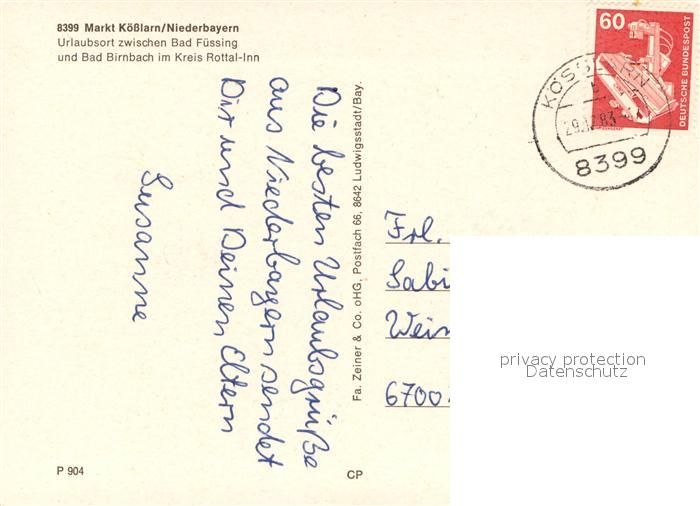 8399 Markt Kößlarn/Niederbayern
Urlaubsort zwischen Bad Füssing
und Bad Birnbach im Kreis Rottal-Inn
Die besten Urlaubsgrüße
aus Niederbayern sendet
Dir und Deinen Eltern
Susanne
Fa. Zeiner & Co. oHG, Postfach 66, 8642 Ludwigsstadt/Bay.
60
DEUTSCHE BUNDESPOST
KÖSSLARN
8399
Frl.
Sabi
Wein
6700
privacy protection
Datenschutz
P 904
CP